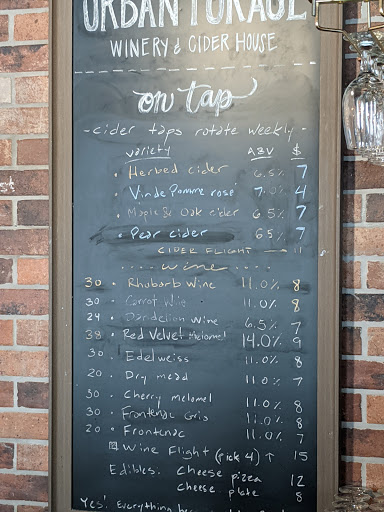 URBAN FORAGE
WINERY & CIDER HOUSE
on tap
- cider taps rotate weekly -
variety ABV $
• Herbed cider 6.5% 7
• Vin de Pomme rosé 7.0% 4
• Maple & Oak cider 6.5% 7
• Pear cider 6.5% 7
CIDER FLIGHT — 11
.... wine ....
30 • Rhubarb Wine 11.0% 8
30 • Carrot Wine 11.0% 8
24 • Dandelion Wine 6.5% 7
38 • Red Velvet Melomel 14.0% 9
30 • Edelweiss 11.0% 8
20 • Dry mead 11.0% 7
30 • Cherry melomel 11.0% 8
30 • Frontenac Gris 11.0% 8
20 • Frontenac 11.0% 7
Wine Flight (pick 4) ↑ 15
Edibles: Cheese pizza 12
Cheese plate 8
Yes! Everything